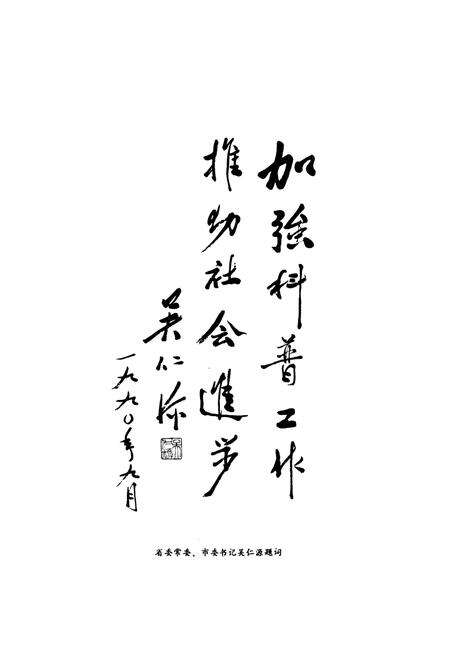 加強科普工作
推动社会進步
吴仁源
一九九〇年九月
省委常委、市委书记吴仁源题词